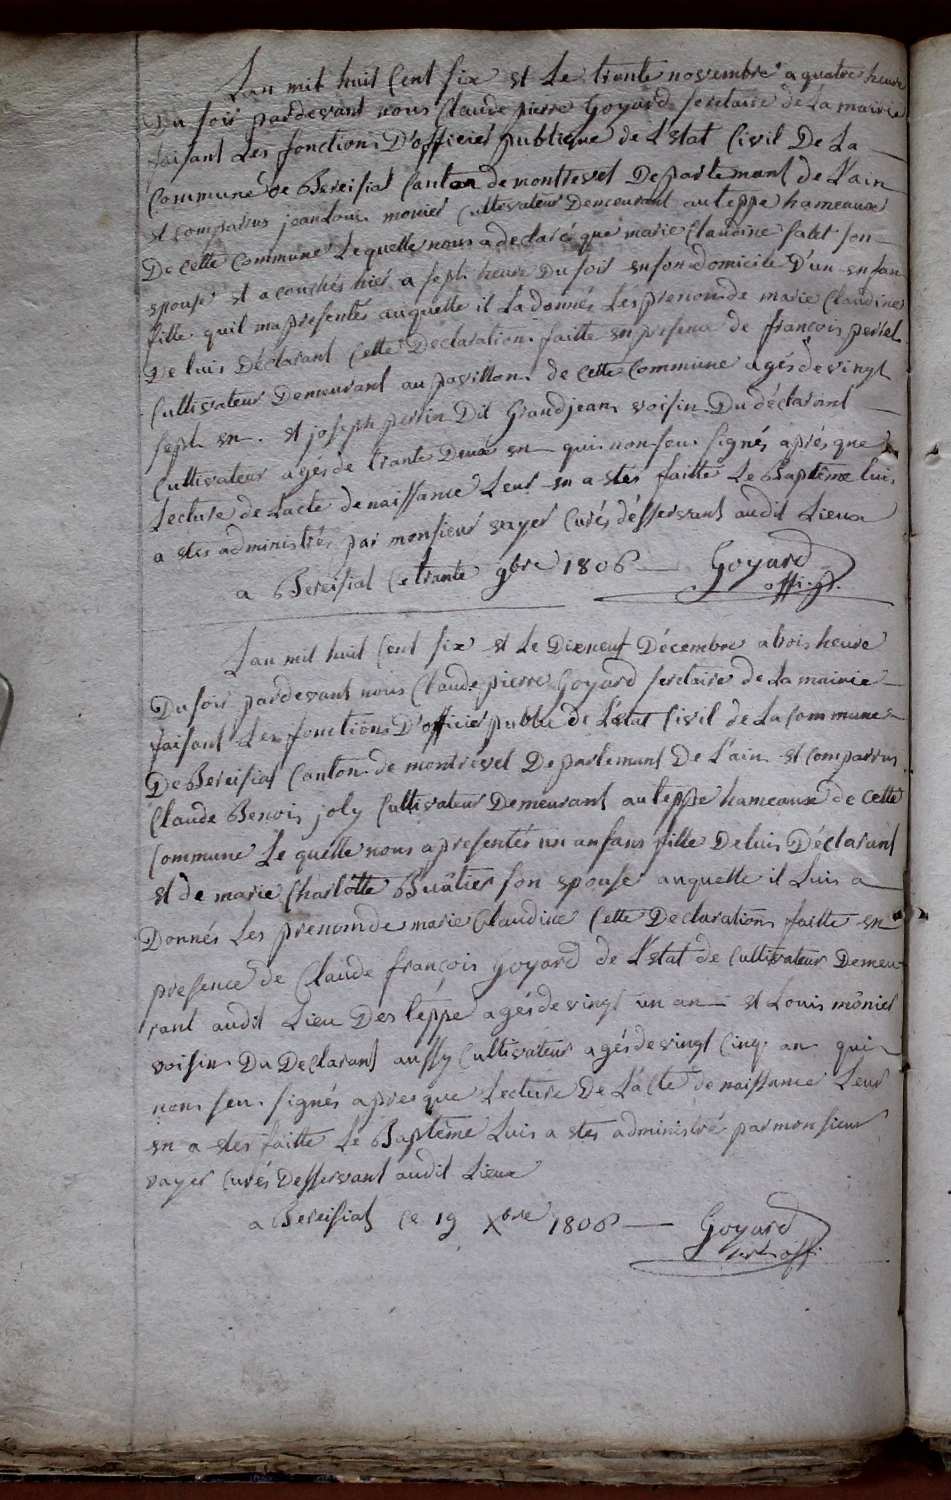 Lan mil huit Cent six et Le trante novembre a quatre heure
Du soir pardevant nous Claude pierre Goyard secretaire de La mairie
faisant Les fonctions D'officier publique de L'Etat Civil De La
Commune De Bereisiat Canton de montrevel Departemant de L'ain
et comparrus jeanlouis monier Cultivateur Demeurant au teppe hameaux
De cette Commune Lequelle nous a declaré que marie Claudine falet son
epouse et acouchés hier a sept heure Du soir en son domicile D'un enfan
fille quil ma presentés auquelle il La donnés Les prenom de marie Claudine
De luis Déclarant Cette Declaration faitte en presence de françois perret
Cultivateur Demeurant au pavillon de cette Commune agés de vingt
sept en et joseph perrin Dit Grandjean voisin Du déclarant
Cultivateur agés de trante Deux en qui non seu signés après que
Lecture de Lacte de naissance Leur en a etes faitte Le Baptême luis
a etes administrés par monsieur vayer Curés désservant audit Lieux
a Bereisiat Ce trante 9bre 1806 Goyard
offi. p.
Lan mil huit Cent six et Le Dixneuf Décembre a trois heure
Du soir pardevant nous Claude pierre Goyard secretaire de La mairie
faisant Les fonctions D'officier public de L'état Civil de La Commune
De Bereisiat Canton de montrevel Departemant De L'ain et comparrus
Claude Benois joly Cultivateur Demeurant au teppe hameaux de cette
Commune Le quelle nous a presentés un anfans fille De luis Déclarant
et de marie Charlotte Buâtier son epouse auquelle il Luis a
Donnés Les prenom de marie Claudine Cette Declaration faitte en
presence de Claude françois Goyard de L'etat de Cultivateur Demeu
rant audit Lieu Des teppe agés de vingt un an et Louis mônier
voisin Du Declarant aussy Cultivateur agés de vingt Cinq an qui
nons seu signés apres que Lecture De L'acte de naissance Leur
en a etes faitte Le Baptême Luis a etes administré par monsieur
vayer Curés Desservant audit Lieux
a Bereisiat Ce 19 Xbre 1806 Goyard
offi.